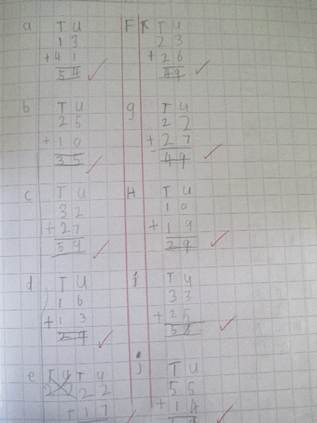 a T U
1 3
+ 4 1
5 4
b T U
2 5
+ 1 0
3 5
c T U
3 2
+ 2 7
5 9
d T U
1 6
+ 1 3
2 9
e T U
2 2
+ 1 7
F T U
2 3
+ 2 6
4 9
g T U
2 2
+ 2 7
4 9
H T U
1 0
+ 1 9
2 9
i T U
3 3
+ 2 5
5 8
j T U
5 5
+ 1 4